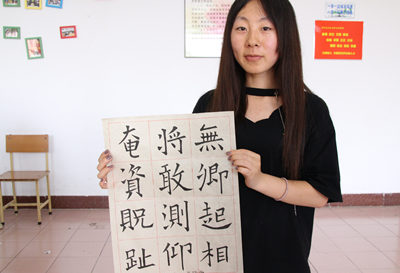 無卿起相
將敢測仰
奄資貺趾